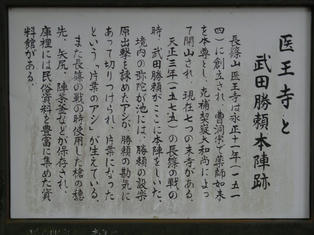 医王寺と
武田勝頼本陣跡
長篠山医王寺は永正十一年(一五一
四)に創立され、曹洞宗で薬師如来
を本尊とし、克補契嶷大和尚によっ
て開山され、現在七つの末寺がある。
天正三年(一五七五)の長篠の戦の
時、武田勝頼がここに本陣をしいた。
境内の弥陀が池には、勝頼の設楽
原出撃を諫めたアシが、勝頼の勘気に
あって切りつけられ、片葉になった
という「片葉のアシ」が生えている。
また長篠の戦の時使用した槍の穂
先、矢尻、陣茶釜などが保存され、
庫裡には民俗資料を豊富に集めた資
料館がある。